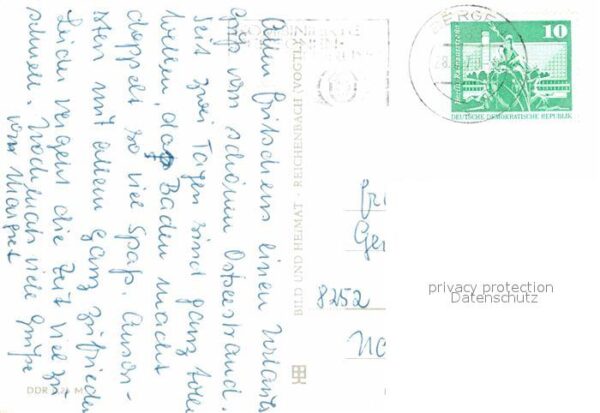 Allen fritschens einen Urlaubs
gruß vom schönen Ostseestrand.
Seit zwei Tagen sind ganz tolle
Wellen, da Baden macht
doppelt so viel Spaß. Anson-
sten mit allem ganz zufrieden
Leider vergeht die Zeit viel zu
schnell. Nochmals viele Grüße
von Margret
DDR
BILD UND HEIMAT · REICHENBACH (VOGTL)
BERGE
10
Berlin, Rathausstraße
DEUTSCHE DEMOKRATISCHE REPUBLIK
8252
privacy protection
Datenschutz